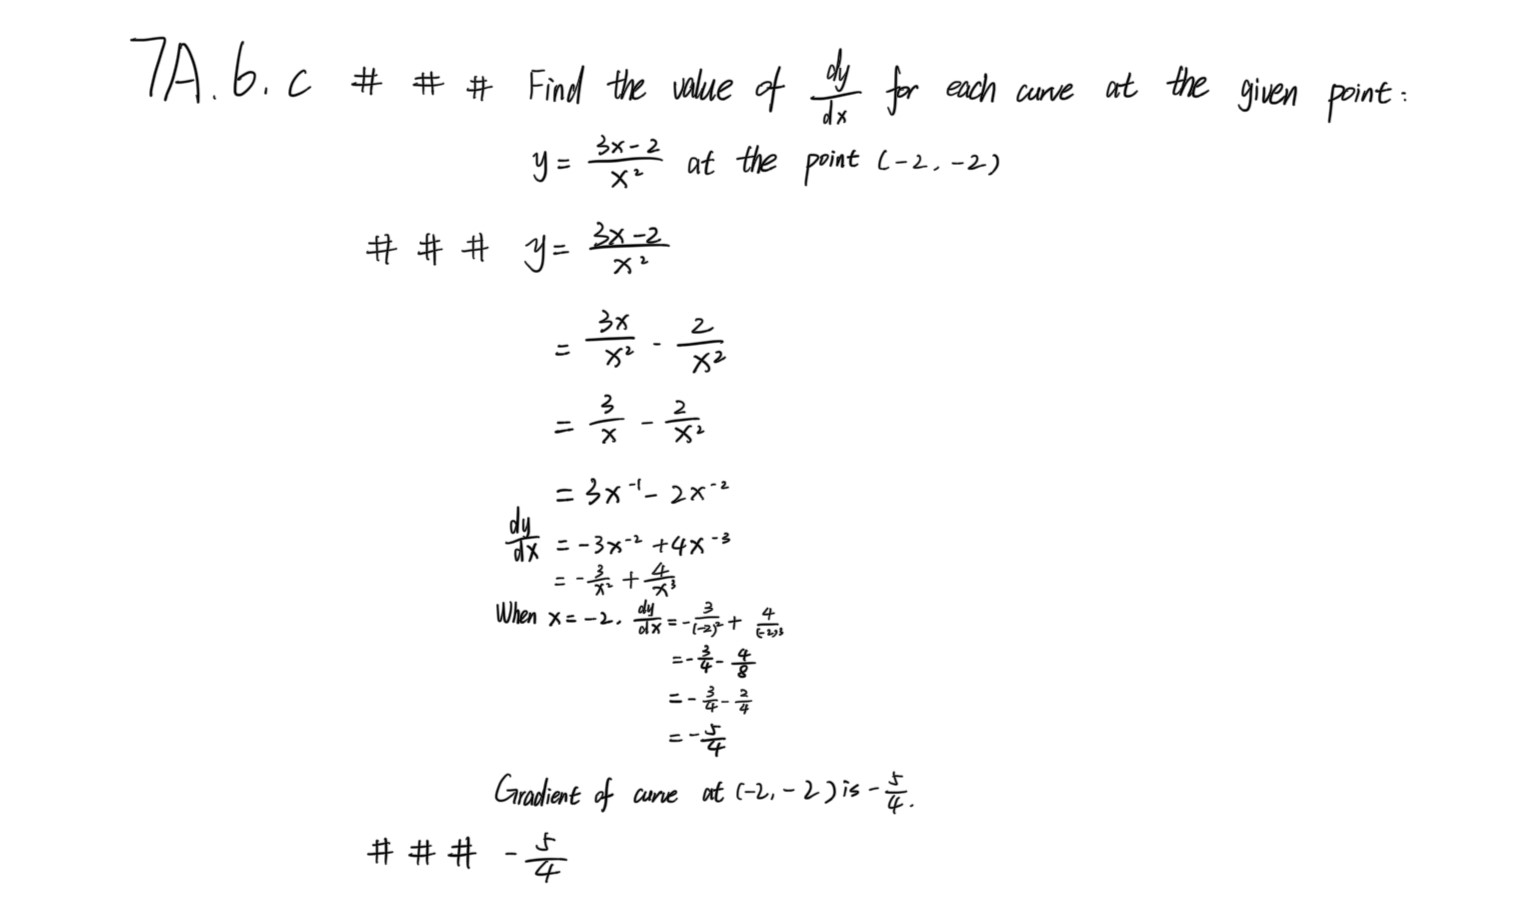 7A.6.c # # # Find the value of dy/dx for each curve at the given point:
y = (3x-2)/x² at the point (-2, -2)
# # # y = (3x-2)/x²
= 3x/x² - 2/x²
= 3/x - 2/x²
= 3x⁻¹ - 2x⁻²
dy/dx = -3x⁻² + 4x⁻³
= -3/x² + 4/x³
When x = -2, dy/dx = -3/(-2)² + 4/(-2)³
= -3/4 - 4/8
= -3/4 - 2/4
= -5/4
Gradient of curve at (-2, -2) is -5/4.
# # # -5/4